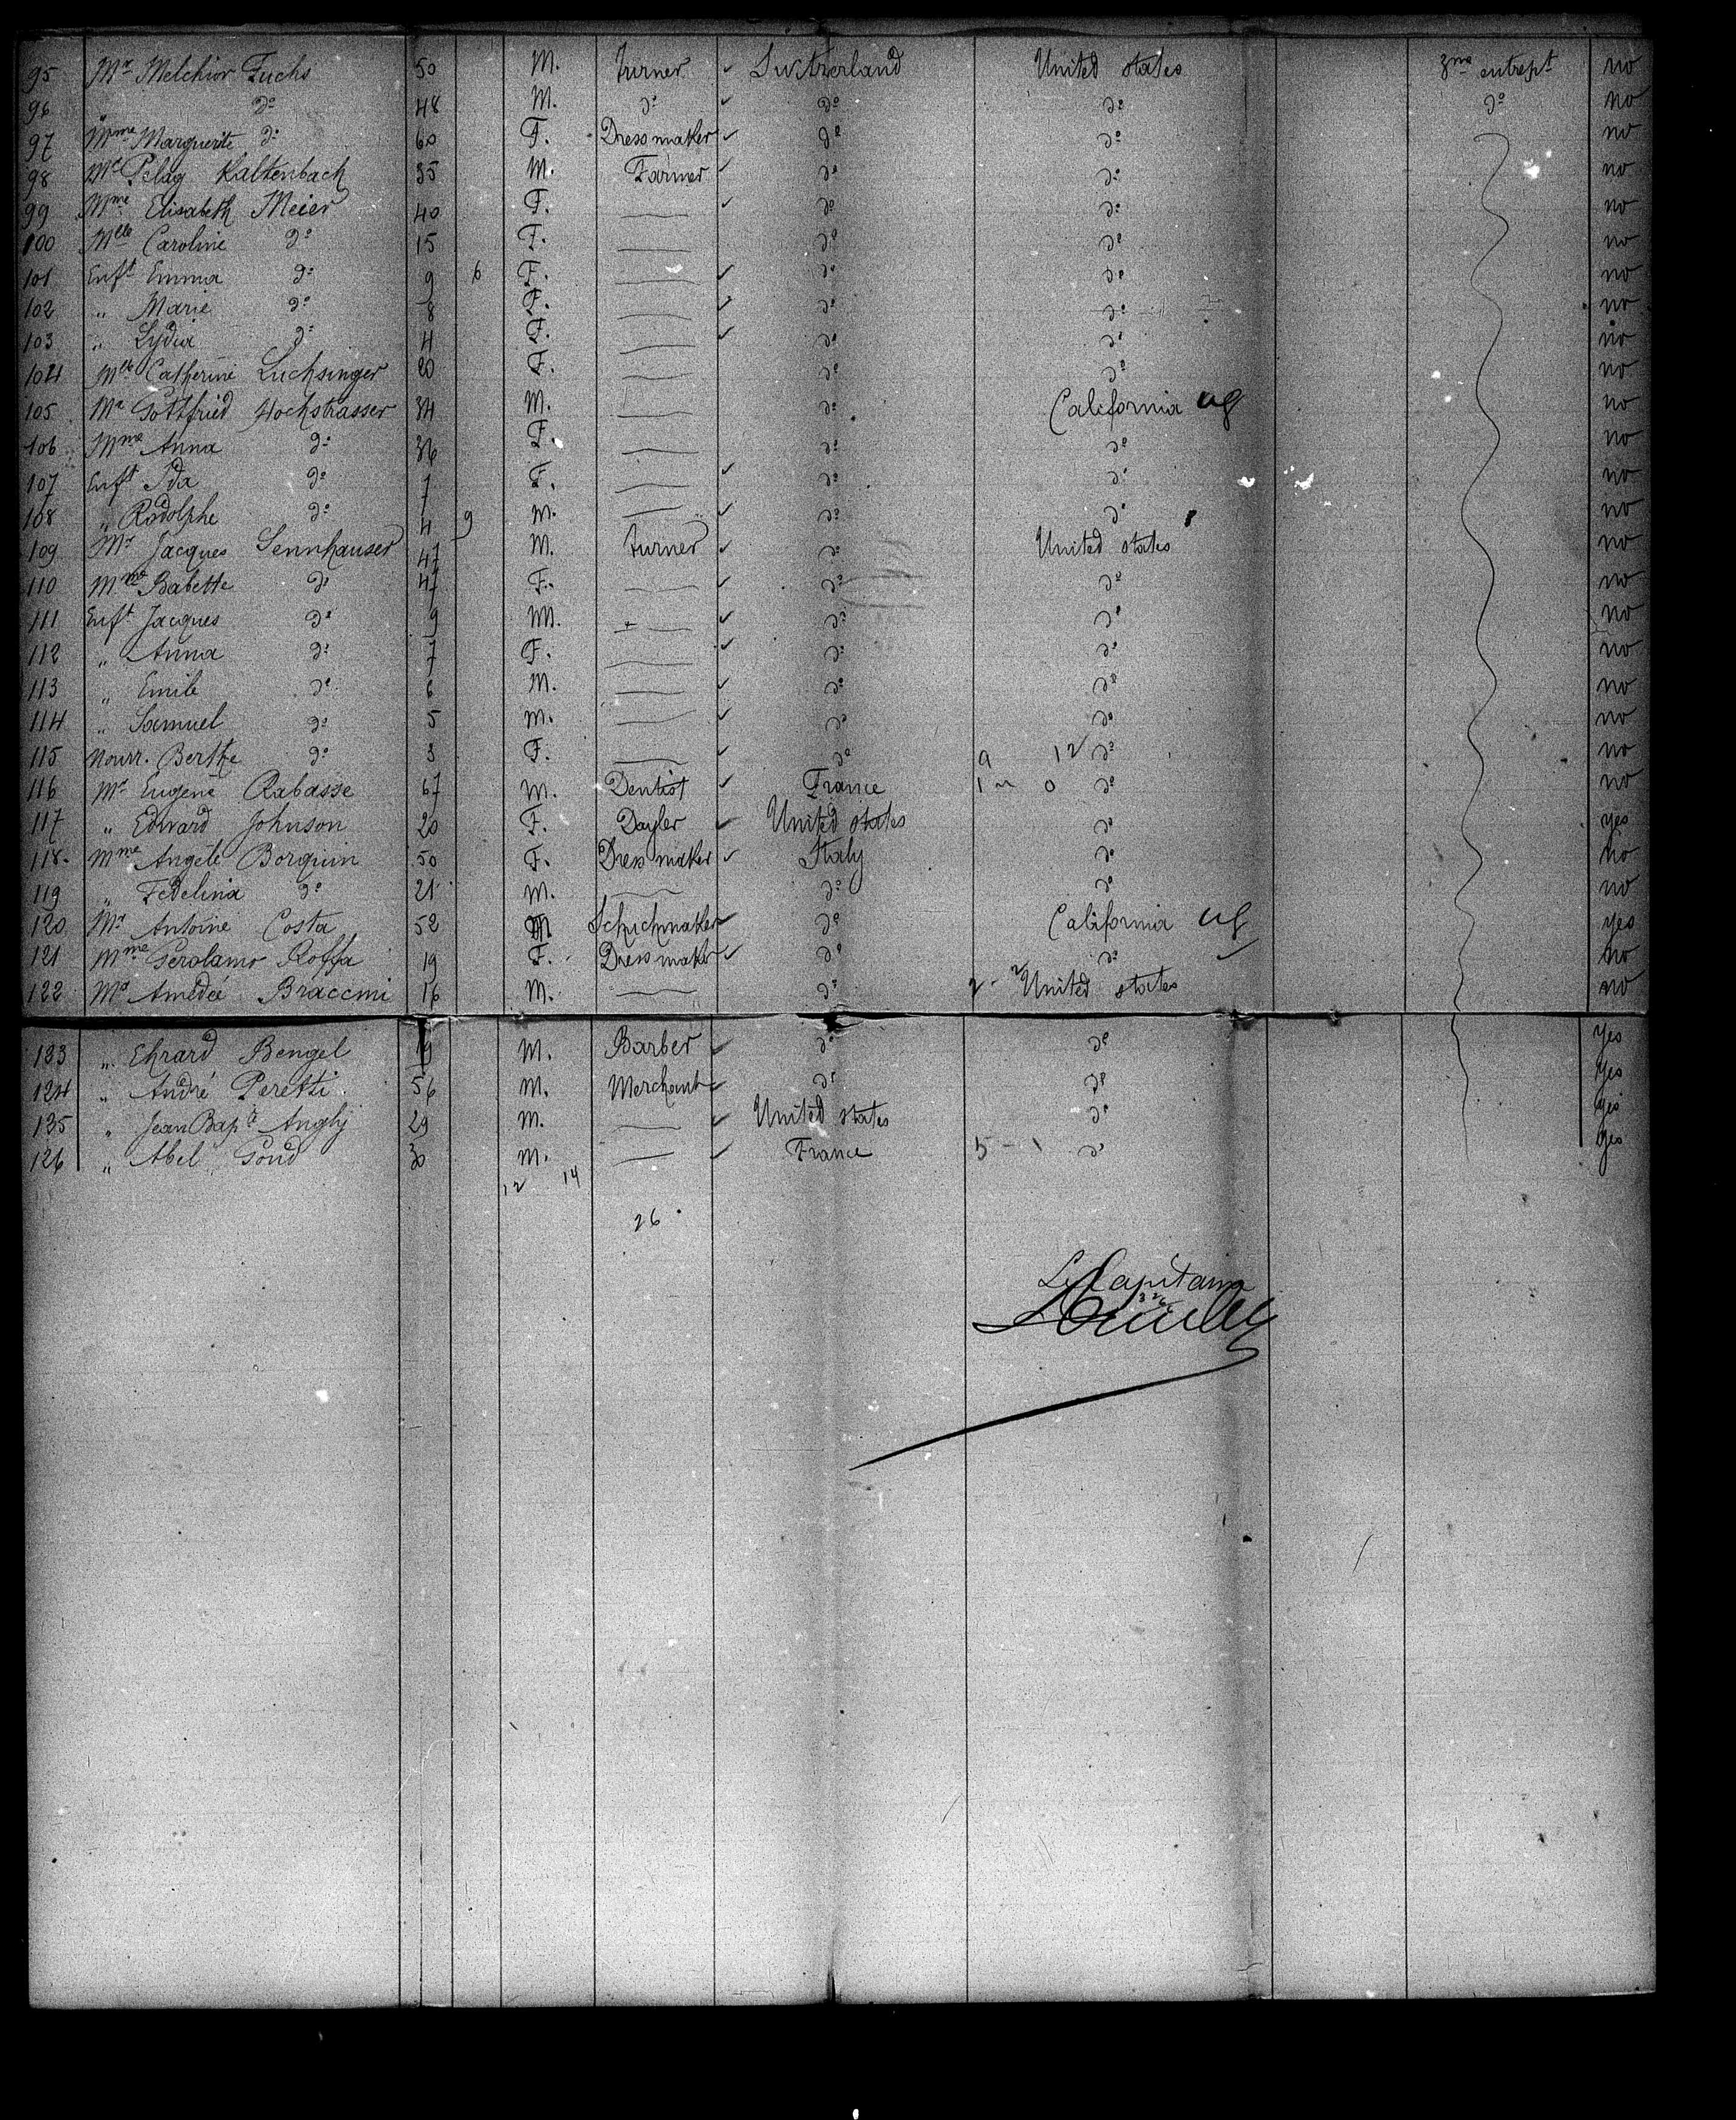 95 Mr Melchior Fuchs 50 M. Turner Switzerland United states 3me entrept no
96 do 48 M. do do do do no
97 Mme Marguerite do 60 F. Dressmaker do do no
98 Mr Pelag Kaltenbach 35 M. Farmer do do no
99 Mme Elisabeth Meier 40 F. do do no
100 Mlle Caroline do 15 F. do do no
101 Enft Emma do 9 6 F. do do no
102 " Marie do 8 F. do do no
103 " Lydia do 4 F. do do no
104 Mlle Catherine Luchsinger 20 F. do do no
105 Mr Gottfried Hochstrasser 34 M. do California no
106 Mme Anna do 36 F. do do no
107 Enft Ida do 7 F. do do no
108 " Rodolphe do 4 9 M. do do no
109 Mr Jacques Sennhauser 47 M. Turner do United states no
110 Mme Babette do 47 F. do do no
111 Enft Jacques do 9 M. do do no
112 " Anna do 7 F. do do no
113 " Emile do 6 M. do do no
114 " Samuel do 5 M. do do no
115 Nourr. Berthe do 3 F. do 9 12 do no
116 Mr Eugene Rabasse 67 M. Dentist France 1 0 do no
117 " Edward Johnson 20 F. Dayler United states do yes
118 Mme Angele Borquin 50 F. Dress maker Italy do no
119 " Fedelina do 21 M. do do no
120 Mr Antoine Costa 52 M Schuchmaker do California yes
121 Mme Gerolamo Roffa 19 F. Dress maker do do no
122 Mr Amédée Braccini 16 M. do 2 - 2 United states no
123 " Ehrard Bengel 19 M. Barber do do yes
124 " André Peretti 56 M. Merchant do do yes
135 " Jean Bapte Angly 29 M. United states do yes
126 " Abel Gond 30 M. France 5 - 1 do yes
12 14
26
Le Capitaine